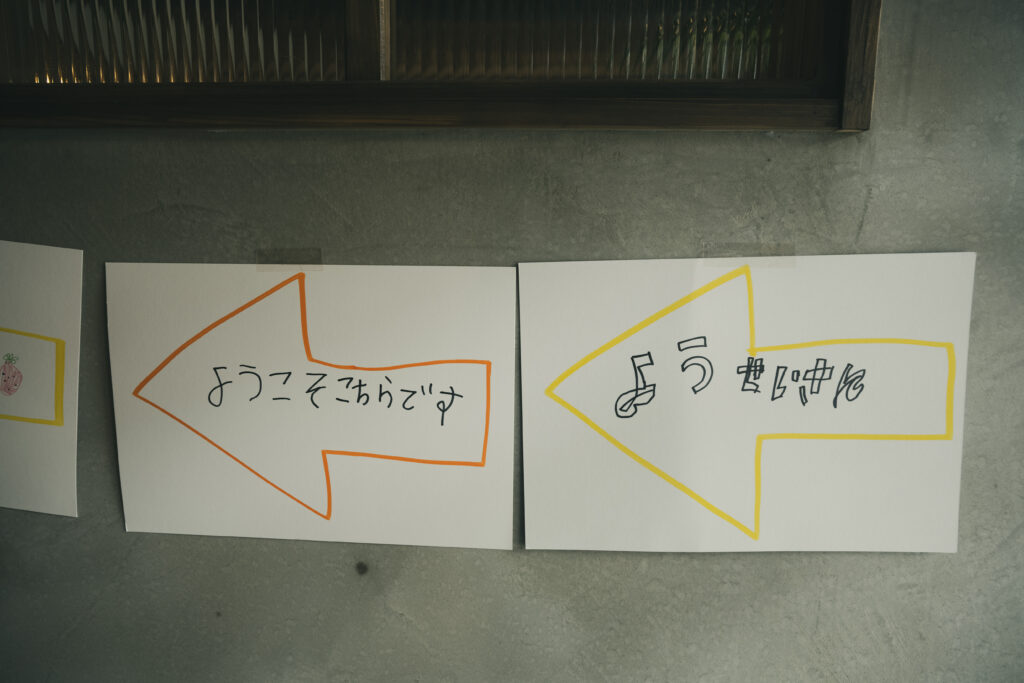 ようこそこちらです
ようせいさん